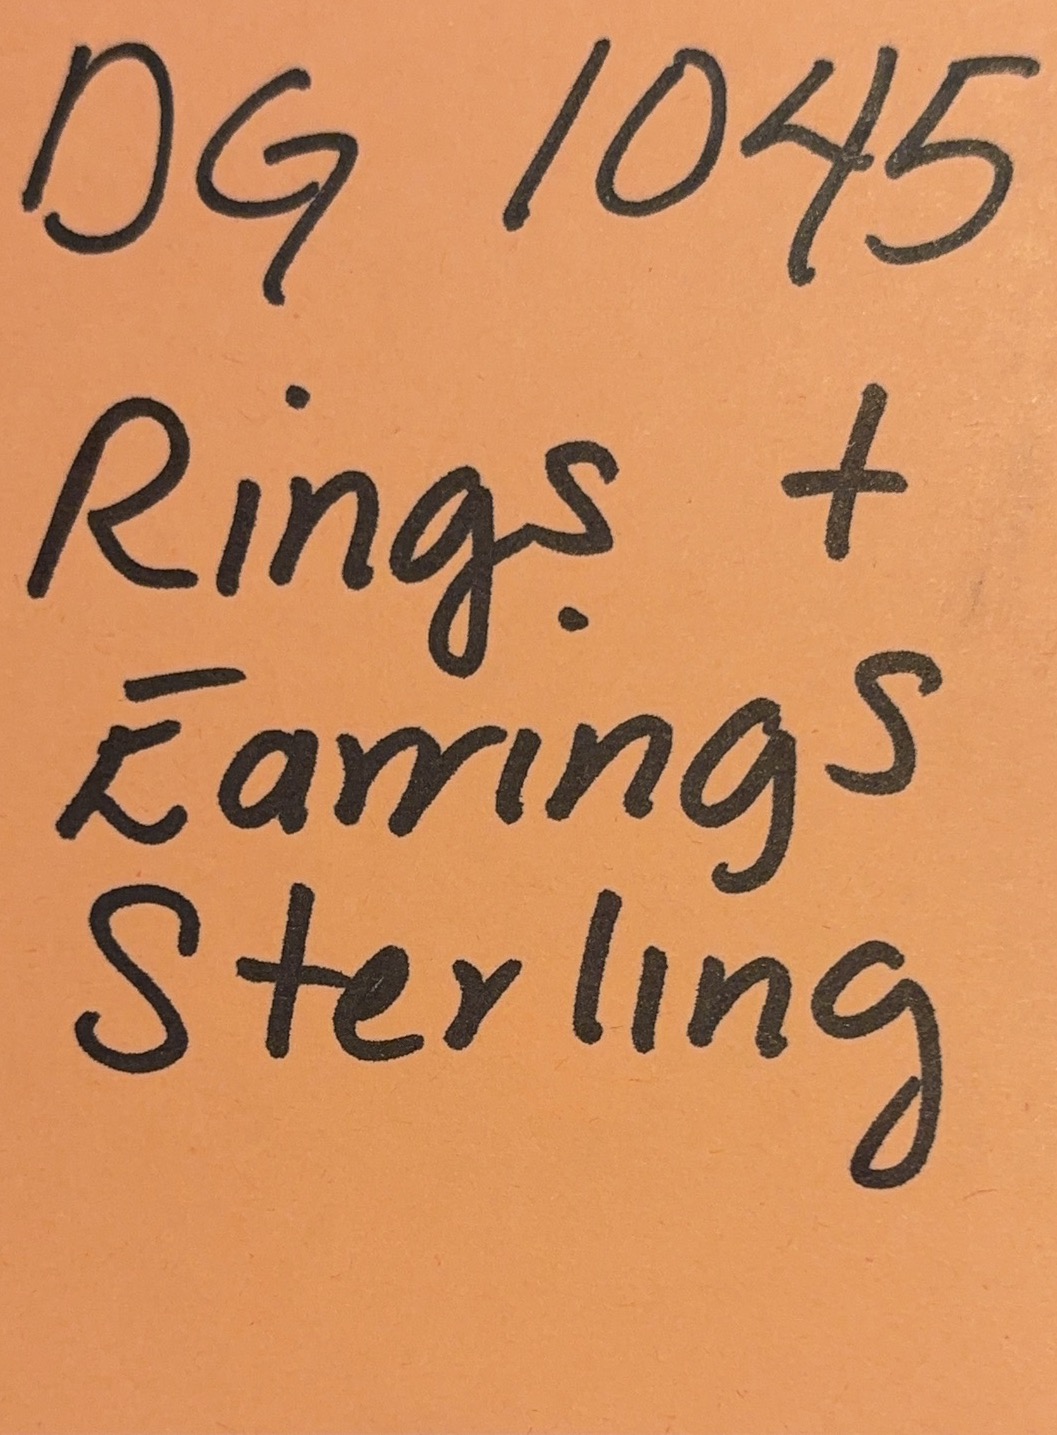 DG 1045
Rings +
Earrings
Sterling